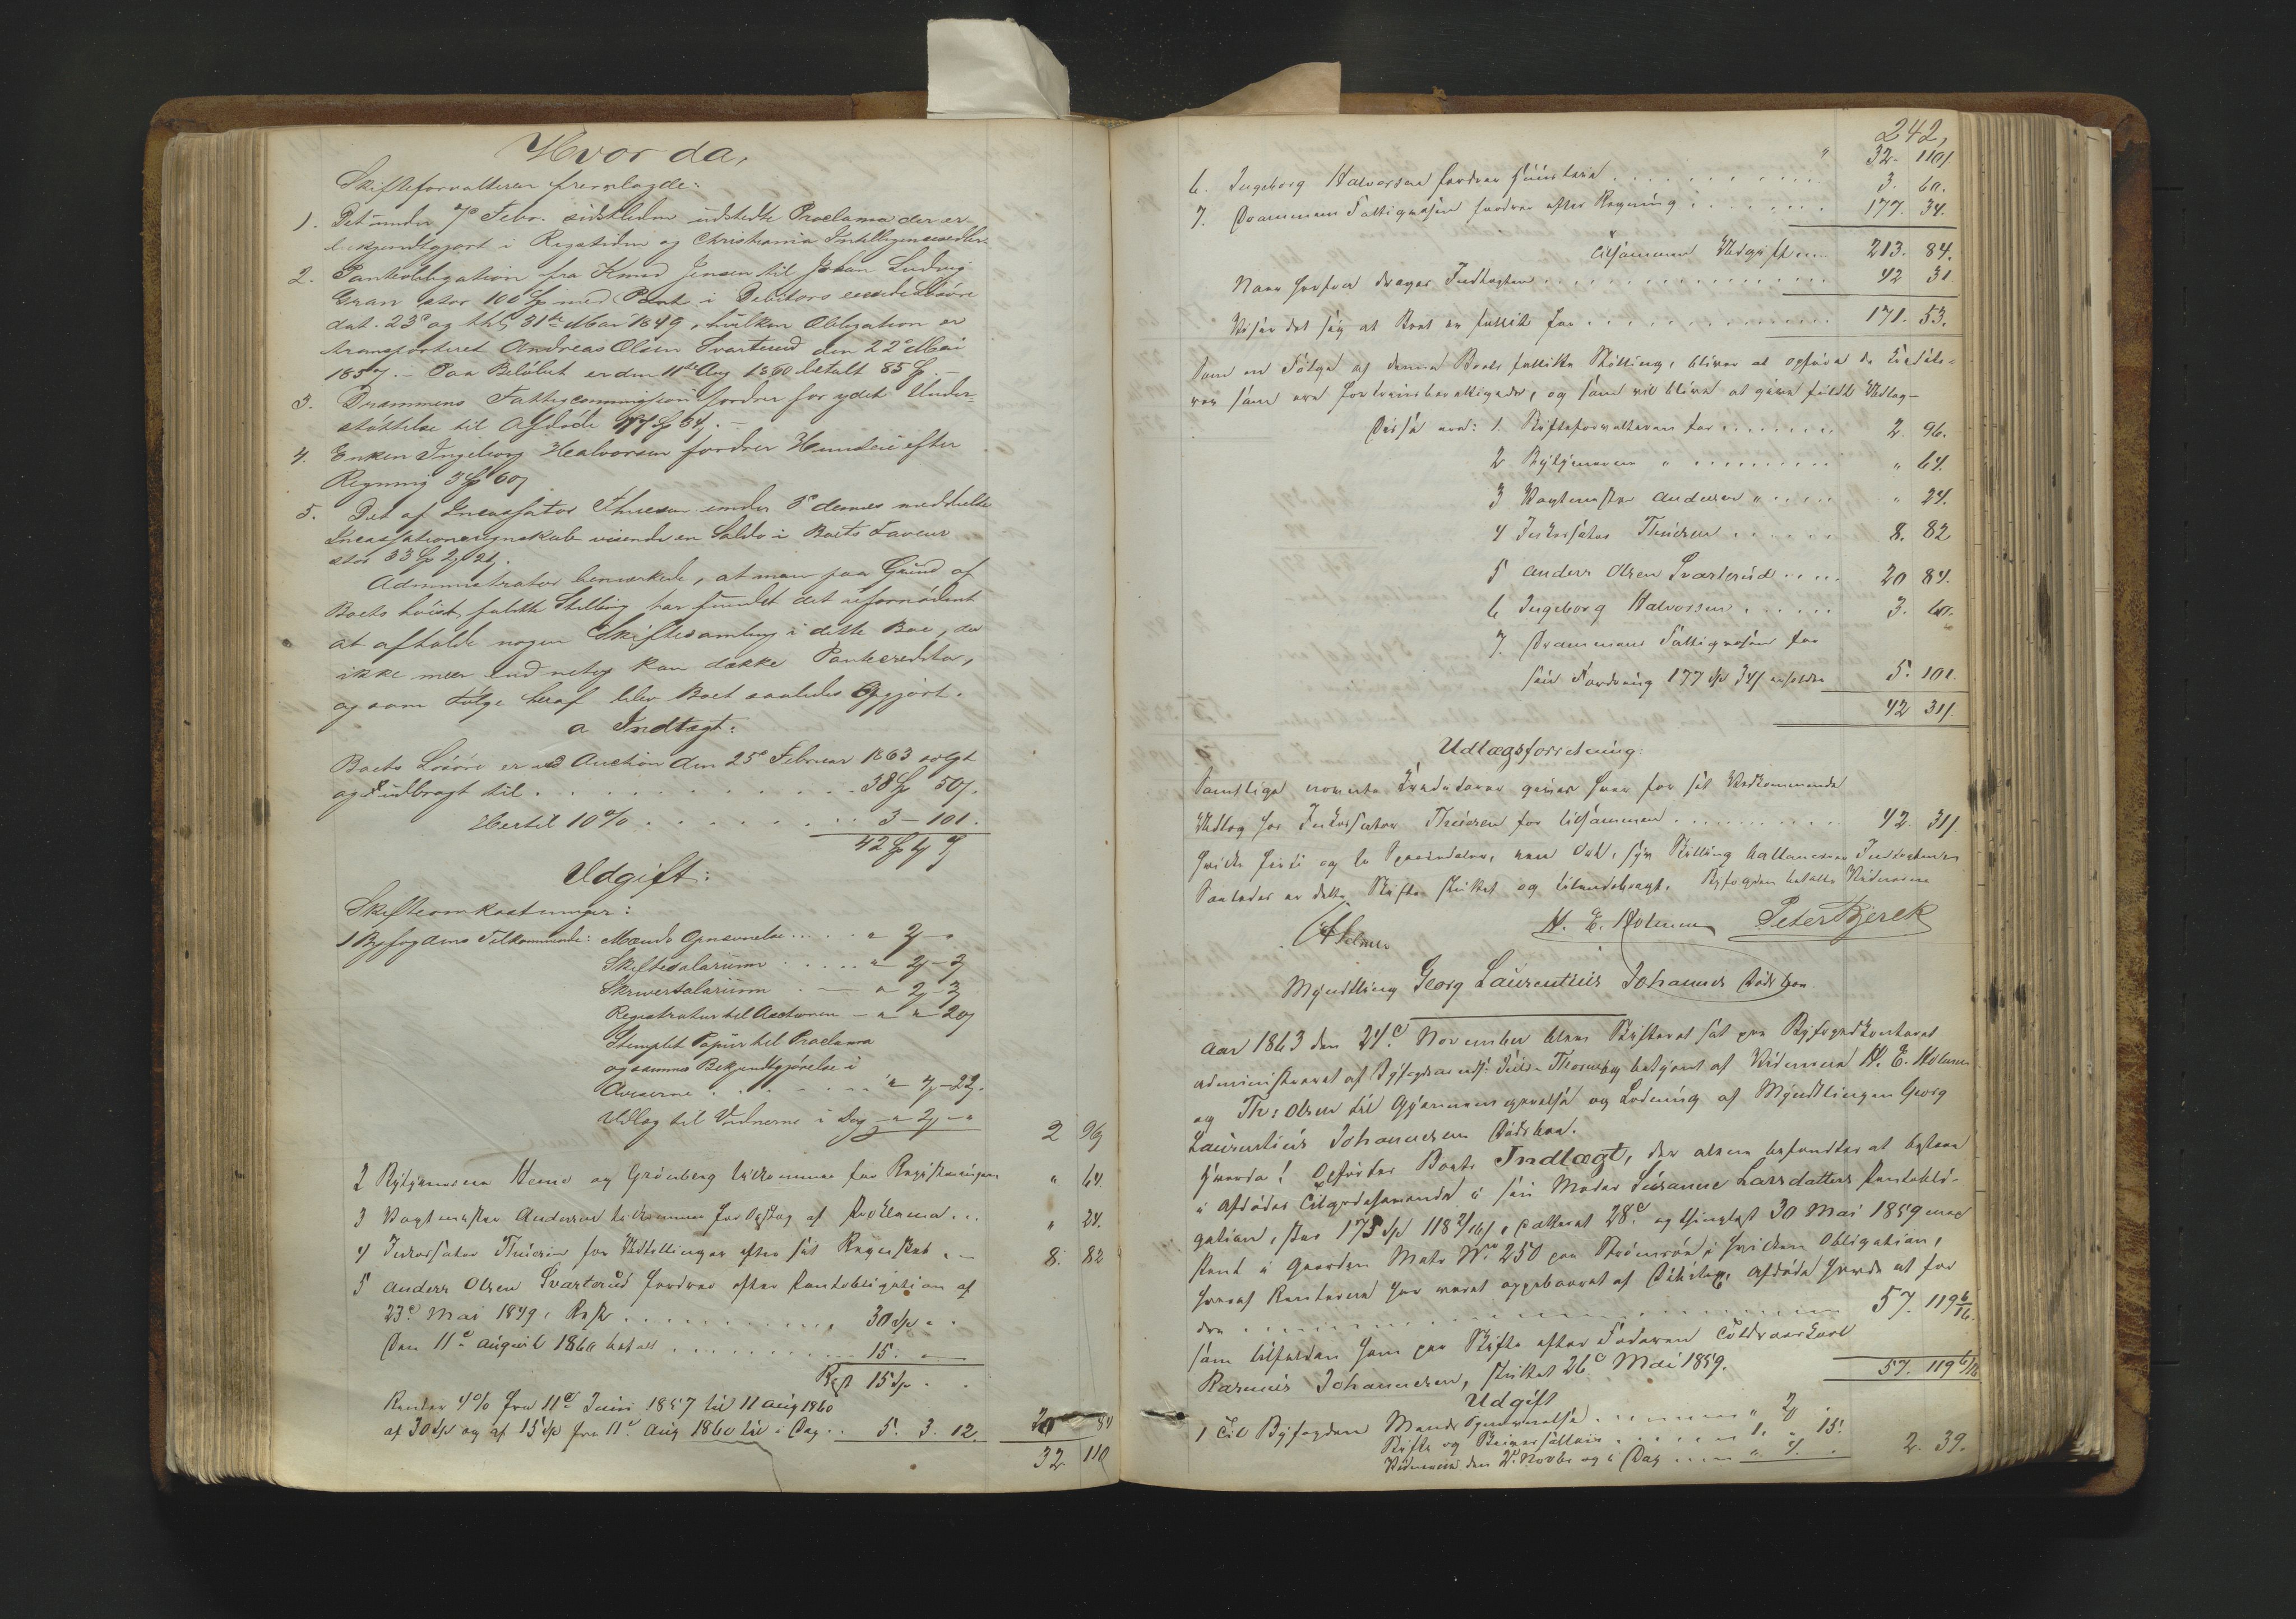 Hvor da,
Skifteforvalteren fremlagde:
1. Det under 7de Febr. sidstleden udstedte Proclama der er
bekjendtgjort i Rigstiden og Christiania Intelligenssedler.
2. Pantobligation fra Knud Jensen til Johan Ludvig
Gran stor 100 Sp med Pant i Debitors
dat. 23de og thl. 31te Mai 1849, hvilken Obligation er
transporteret Andreas Olsen Svarterud den 22de Mai
1857. – Paa Beløbet er den 11te Aug 1860 betalt 85 Sp. –
3. Drammens Fattigcommission fordrer for ydet Under-
støttelse til Afdøde 177 Sp 34 s. –
4. Enken Ingeborg Halvorsen fordrer Huusleie efter
Regning 3 Sp 60 s
5. Det af Incassator Thuesen under 3de dennes meddeelte
Incassationsregnskab visende en Saldo i Boets Faveur
stor 33 Sp 2 s.
Administrator bemærkede, at man paa Grund af
Boets høist fallitte Stilling har fundet det ufornødent
at afholde nogen Skiftesamling i dette Boe, der
ikke meer end netop kan dække Pantcreditor,
og som Følge heraf blev Boet saaledes Opgjort.
a Indtægt:
Boets Løsøre er ved Auction den 25de Februar 1863 solgt
og udbragt til . . . . . . . . . . 38 Sp 50 s.
Hertil 10% . . . . . . . . 3 – 101.
42 Sp
Udgift:
Skifteomkostninger:
1 Byfogdens Tilkommende: Mænds Opnævnelse . . . . " 2 – "
Skiftesalarium . . . . " 2 – 3
Skriversalarium . – " 2 – 3
Registratur til Auctionen – " " 20
Stemplet Papiir til Proclama
og samme Bekjendtgjørelse i
Aviserne . . . . . . " 4 – 22.
Udlæg til Vidnerne i Dag " 2 – " 2 96
2 Bytjenerne Heme og Grønberg tilkommer for Registreringen " 64.
3 Vagtmester Andersen tilkommer for Opslag af Proklama . . . " 24.
4 Inkassator Thuesen for Udtællinger efter sit Regnskab . – 8. 82
5 Anders Olsen Svarterud fordrer efter Pantobligation af
23de Mai 1849, Rest . . . . . . . . 30 Sp " .
Den 11te August 1860 betalt . . . . . . . . . 15. "
Rest 15 Sp . .
Renter 4% fra 11te Juni 1857 til 11 Aug 1860
af 30 Sp og af 15 Sp fra 11te Aug 1860 til i Dag . . 5. 3. 12. 20 84
32 110
242,
" 32. 110
6. Ingeborg Halvorsen fordrer Huusleie . . . . . . . . . 3. 60.
7. Drammens Fattigvæsen fordrer efter Regning . . . . . . . 177. 34.
Tilsammen Udgift 213. 84.
Naar herfra drages Indtægten . . . . . . . . . . . . . 42 31
Viser det sig at Boet er fallit for . . . . . . . . . . . 171. 53.
Som en Følge af denne Boets fallitte Stilling, bliver at opføre de Credito-
rer som ere fortrinsberettigede, og som vil blive at gives fuldt Udlæg –
Disse ere: 1. Skifteforvalteren for . . . . . . . 2. 96.
2 Bytjenerne " . . . . . . . . . " 64.
3 Vagtmester Andersen " . . . . . " 24.
4 Inkassator Thuesen . . . . . . 8. 82
5 Anders Olsen Svarterud . . . . 20 84.
6 Ingeborg Halvorsen . . . . . . 3. 60.
7. Drammens Fattigvæsen for
sin Fordring 177 Sp 34 s erholder 5. 101.
42 31
Udlægsforretning:
Samtlige nævnte Creditorer gives hver for sit Vedkommende
Udlæg hos Inkassator Thuesen for tilsammen . . . . . . . . . . 42. 31
Hvilke firti og to Speciedaler, een Ort, syv Skilling ballancerer Indtægten
Saaledes er dette Skifte sluttet og tilendebragt. Byfogden betalte Vidnerne
H. E. Holmen Peter Bjerck
Myndtling Georg Laurentius Johannes Dødsboe.
Aar 1863 den 24de November blev Skifteret sat paa Byfogedkontoret
administreret af betjent af Vidnerne H. E. Holmen
og Ths Olsen til Gjennemgaaelse og Lodning af Myndtlingen Georg
Laurentius Johannesens Dødsboe.
Hvorda! Opførtes Boets Indtægt, der alene befandtes at bestaae
i Afdødes Tilgodehavende i sin Moder Susanne Larsdatters Pantobli-
gation, stor 175 Sp 118 2/16 s, dateret 28de og thinglæst 30 Mai 1859 med
Pant i Gaarden Matr No 250 paa Strømsøe, i hvilken Obligation,
hvoraf Renterne har været oppebaaret af afdøde havde at for
dre . . . . . . . . . . . . . . . 57. 119 6/16.
som tilfalden ham paa Skifte efter Faderen
Rasmus Johannesen, sluttet 26de Mai 1859. 57. 119 6/16
Udgift
1 Til Byfogden Mænds Opnævnelse . . . . . . " 2 .
Skifte og Skriversallair . . . . . 1. " 15.
Vidnerne den 2. Novbr og i Dag . . . . " 4. " 2. 39.